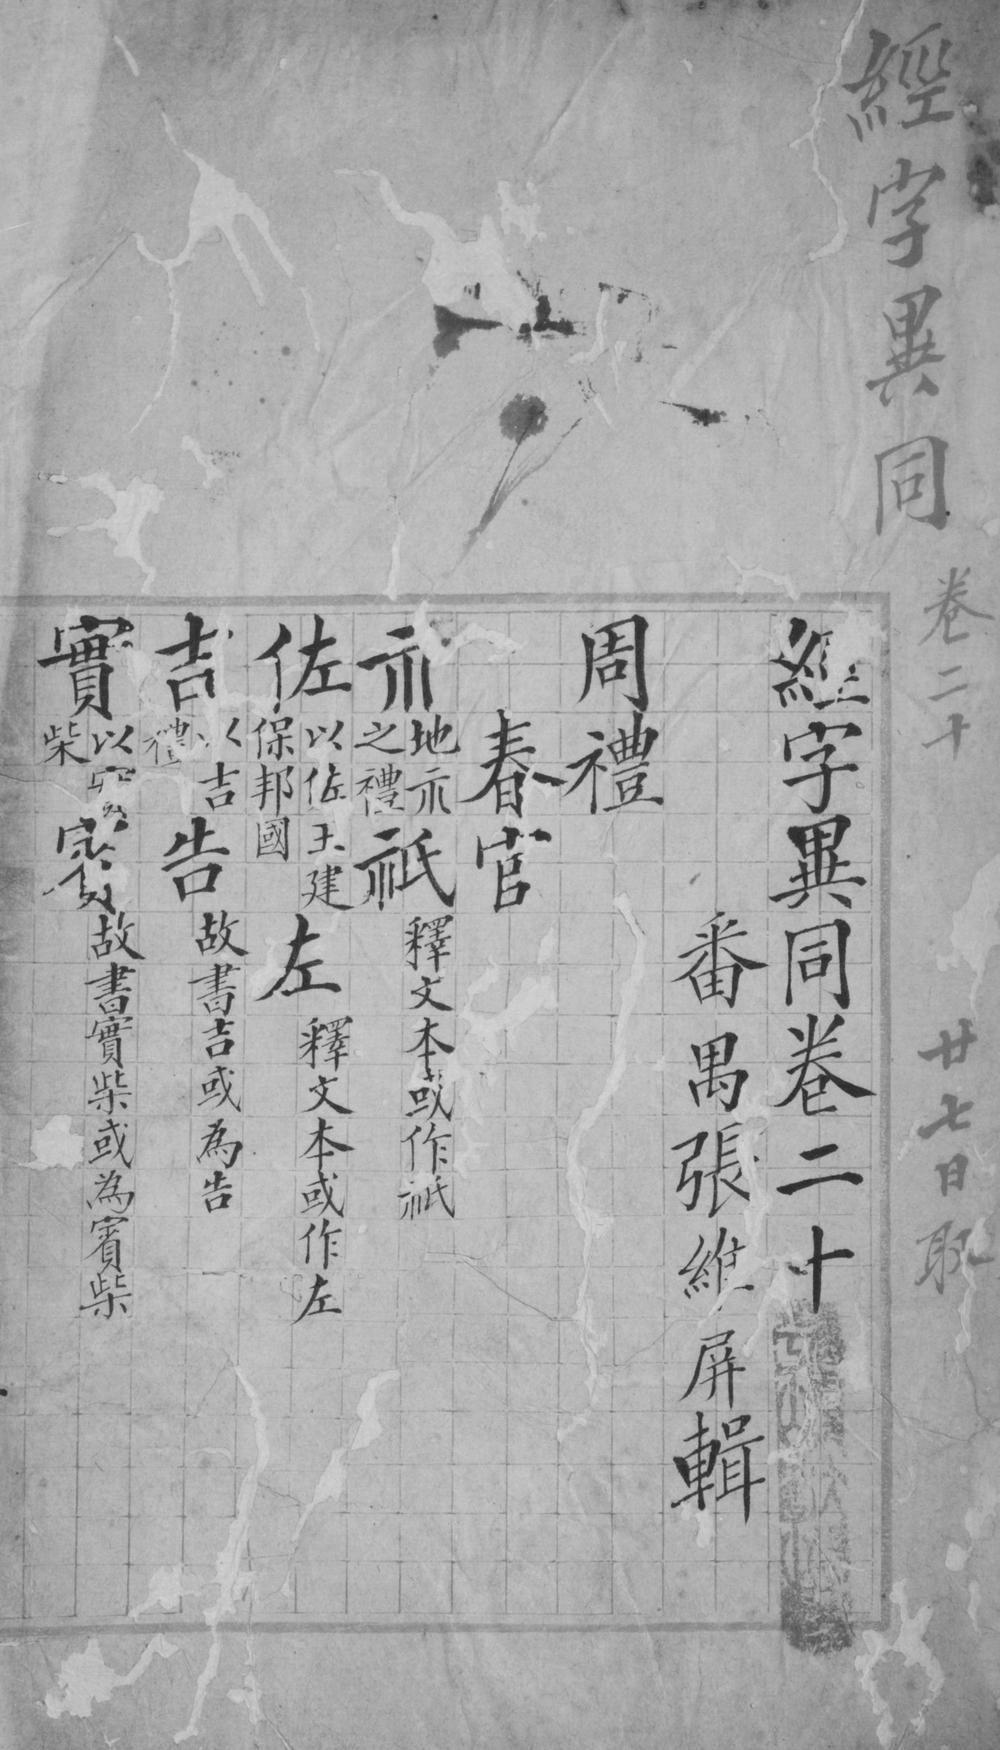 經字異同 卷二十 廿七日取
經字異同卷二十
番禺張維屏輯
周禮
春官
示地示之禮祇釋文本或作祇
佐以佐王建保邦國左釋文本或作左
吉以吉禮告故書吉或為告
實以實柴賓故書實柴或為賓柴